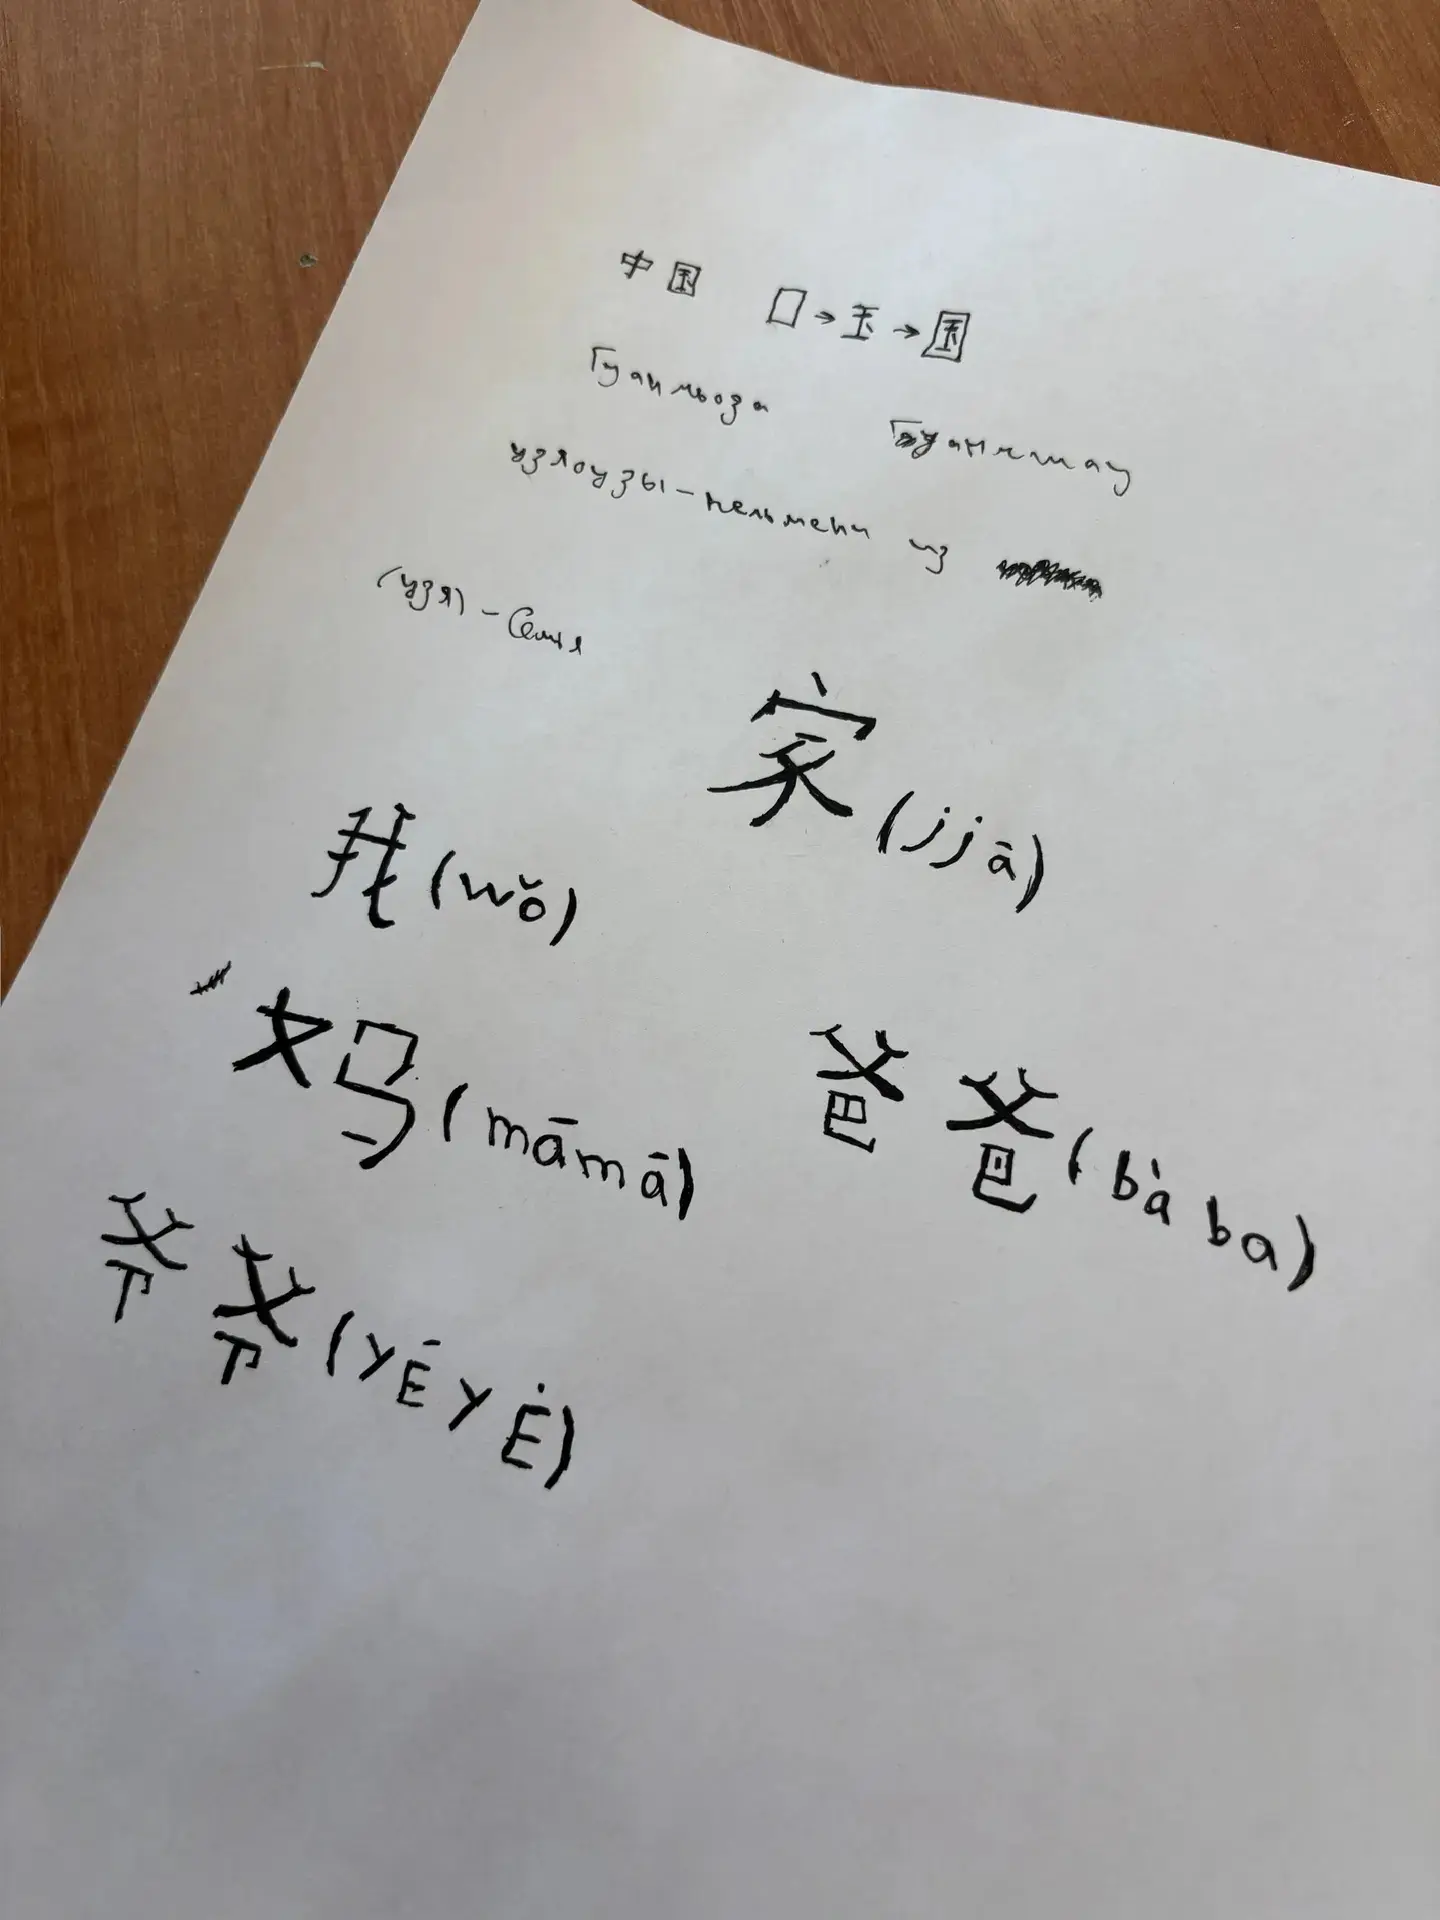 中国 口→玉→国
Гуанчьоза Гуанчжау
узяоузы-пельмени из
(узя) - Семья
家 (jjā)
我 (wǒ)
妈 (māmā)
爸爸 (bàba)
爷爷 (yÉyĖ)